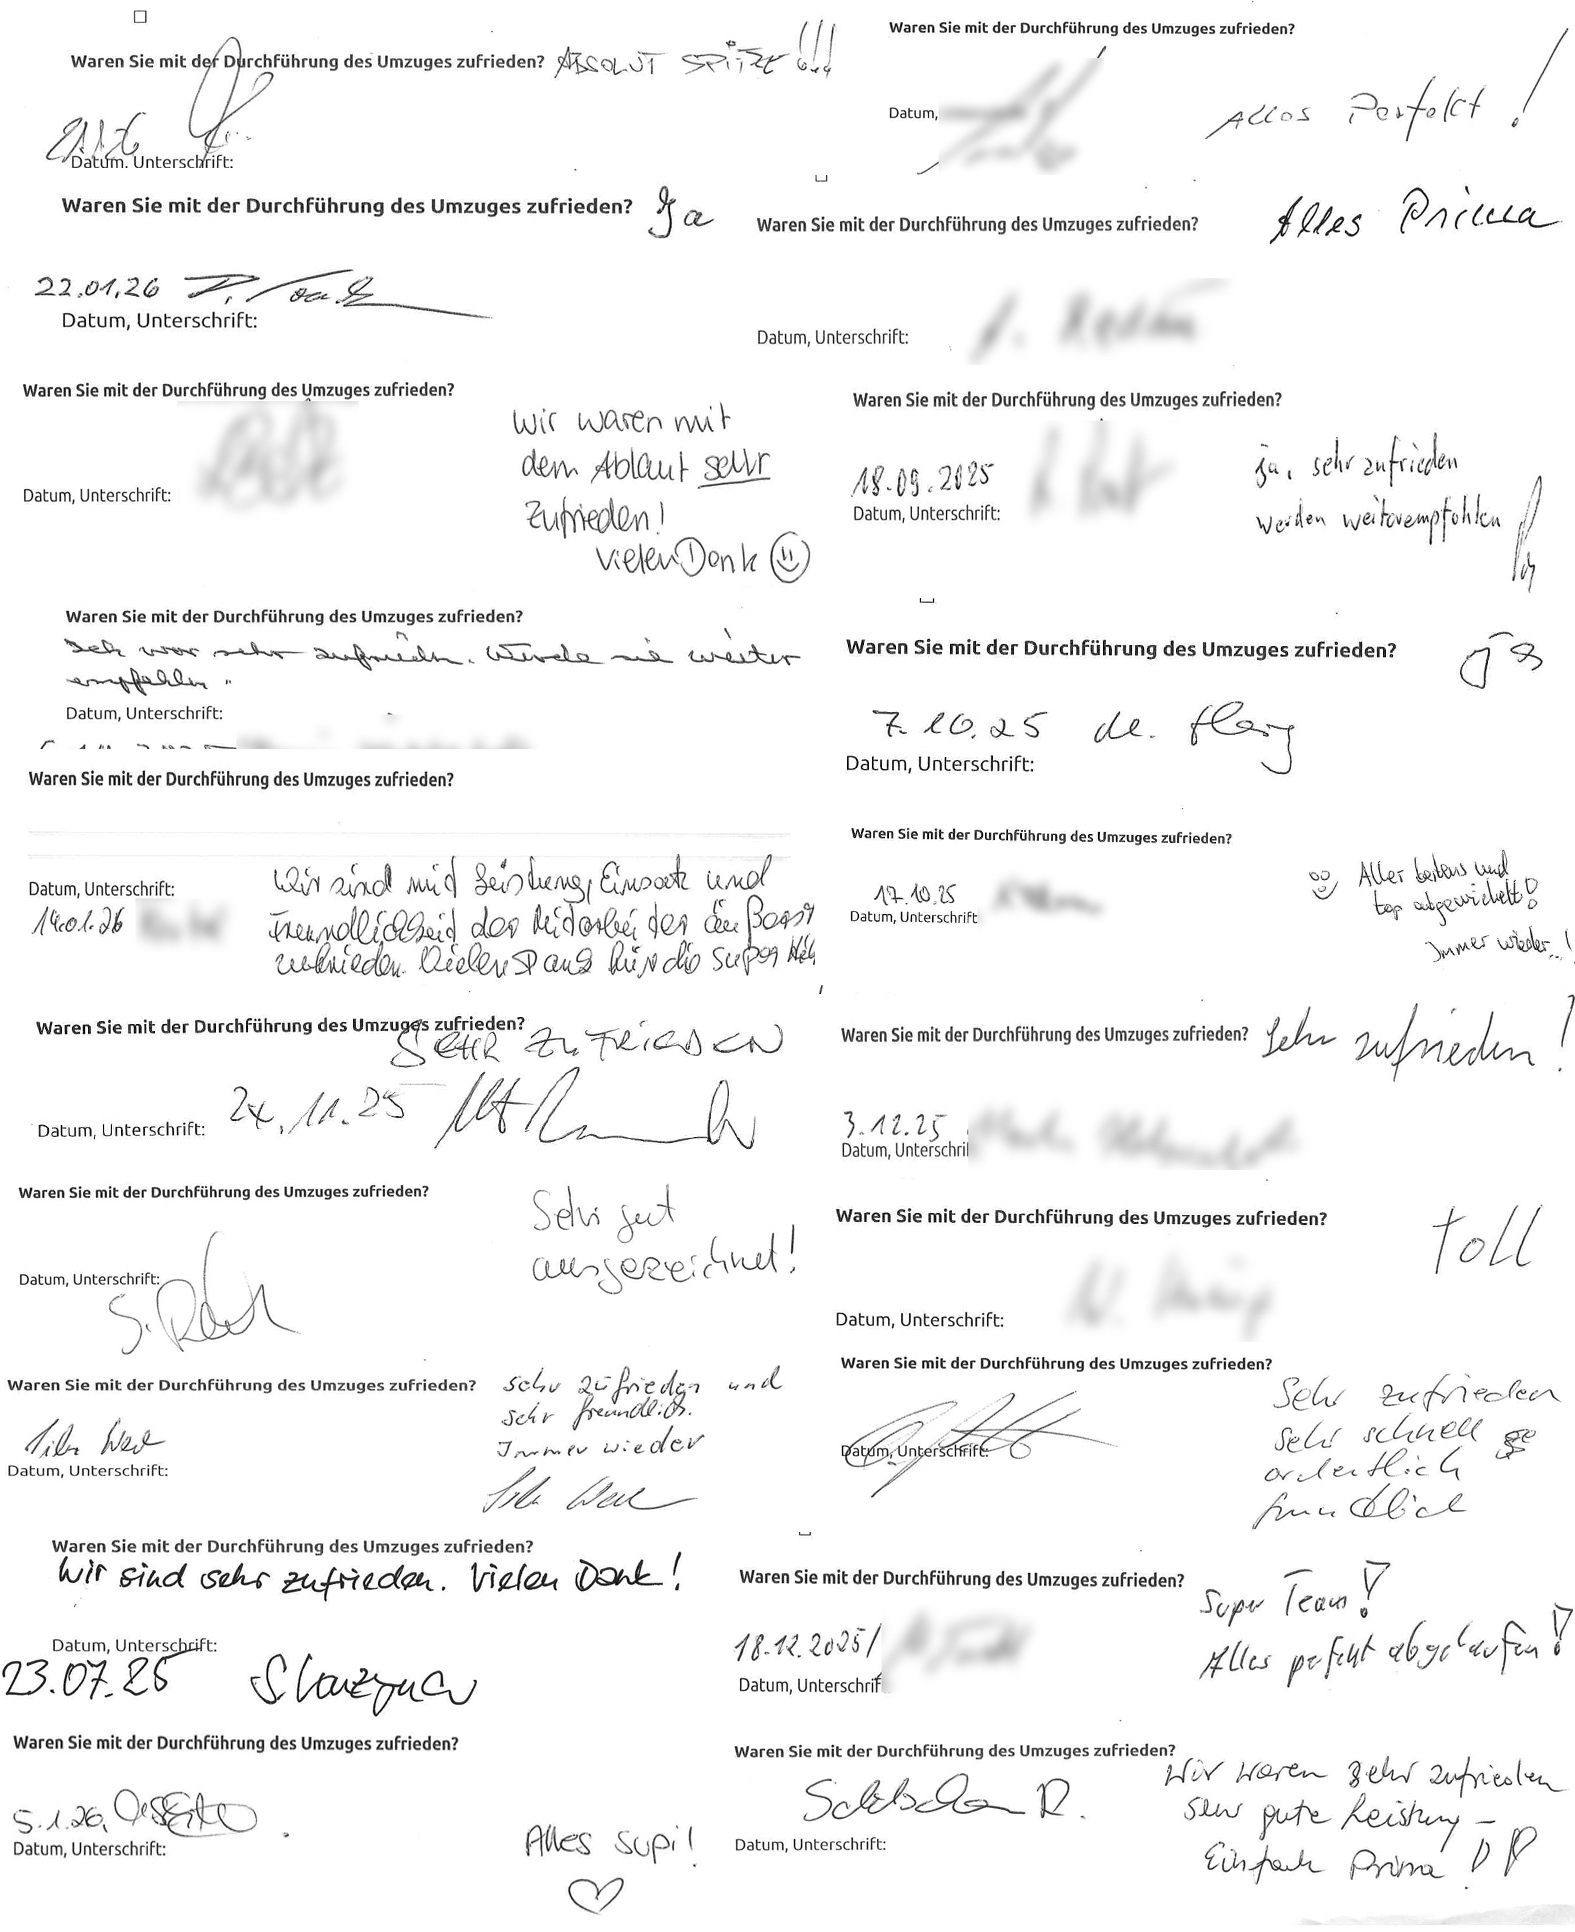 Waren Sie mit der Durchführung des Umzuges zufrieden? ABSOLUT SPITZE !!!
Datum. Unterschrift:
Waren Sie mit der Durchführung des Umzuges zufrieden?
Datum,
Alles Perfekt !
Waren Sie mit der Durchführung des Umzuges zufrieden? Ja
22.01.26
Datum, Unterschrift:
Waren Sie mit der Durchführung des Umzuges zufrieden? Alles Prima
Datum, Unterschrift:
Waren Sie mit der Durchführung des Umzuges zufrieden?
Datum, Unterschrift:
Wir waren mit
dem Ablauf sehr
Zufrieden!
Vielen Dank
Waren Sie mit der Durchführung des Umzuges zufrieden?
18.09.2025
Datum, Unterschrift:
ja, sehr zufrieden
werden weiterempfohlen
Waren Sie mit der Durchführung des Umzuges zufrieden?
Ich war sehr zufrieden. Würde sie weiter
empfehlen.
Datum, Unterschrift:
Waren Sie mit der Durchführung des Umzuges zufrieden? ja
7.10.25
Datum, Unterschrift:
Waren Sie mit der Durchführung des Umzuges zufrieden?
Datum, Unterschrift:
14.01.26
Wir sind mit Leistung, Einsatz und
Freundlichkeit der Mitarbeiter äußerst
zufrieden. Vielen Dank für die super
Waren Sie mit der Durchführung des Umzuges zufrieden?
17.10.25
Datum, Unterschrift
Aller bestens und
top abgewickelt!
Immer wieder...!
Waren Sie mit der Durchführung des Umzuges zufrieden?
SEHR ZUFRIEDEN
24.11.25
Datum, Unterschrift:
Waren Sie mit der Durchführung des Umzuges zufrieden? Sehr zufrieden!
3.12.25
Datum, Unterschri
Waren Sie mit der Durchführung des Umzuges zufrieden?
Datum, Unterschrift:
Sehr gut
ausgezeichnet!
Waren Sie mit der Durchführung des Umzuges zufrieden? toll
Datum, Unterschrift:
Waren Sie mit der Durchführung des Umzuges zufrieden?
Datum, Unterschrift:
sehr zufrieden und
sehr freundlich.
Immer wieder
Waren Sie mit der Durchführung des Umzuges zufrieden?
Datum, Unterschrift:
Sehr zufrieden
sehr schnell
ordentlich
freundlich
Waren Sie mit der Durchführung des Umzuges zufrieden?
Wir sind sehr zufrieden. Vielen Dank!
Datum, Unterschrift:
23.07.25
Waren Sie mit der Durchführung des Umzuges zufrieden?
18.12.2025/
Datum, Unterschrif
Super Team!
Alles perfekt abgelaufen!
Waren Sie mit der Durchführung des Umzuges zufrieden?
5.1.26,
Datum, Unterschrift:
Alles supi!
Waren Sie mit der Durchführung des Umzuges zufrieden?
Datum, Unterschrift:
Wir waren sehr zufrieden
sehr gute Leistung –
Einfach Prima !!